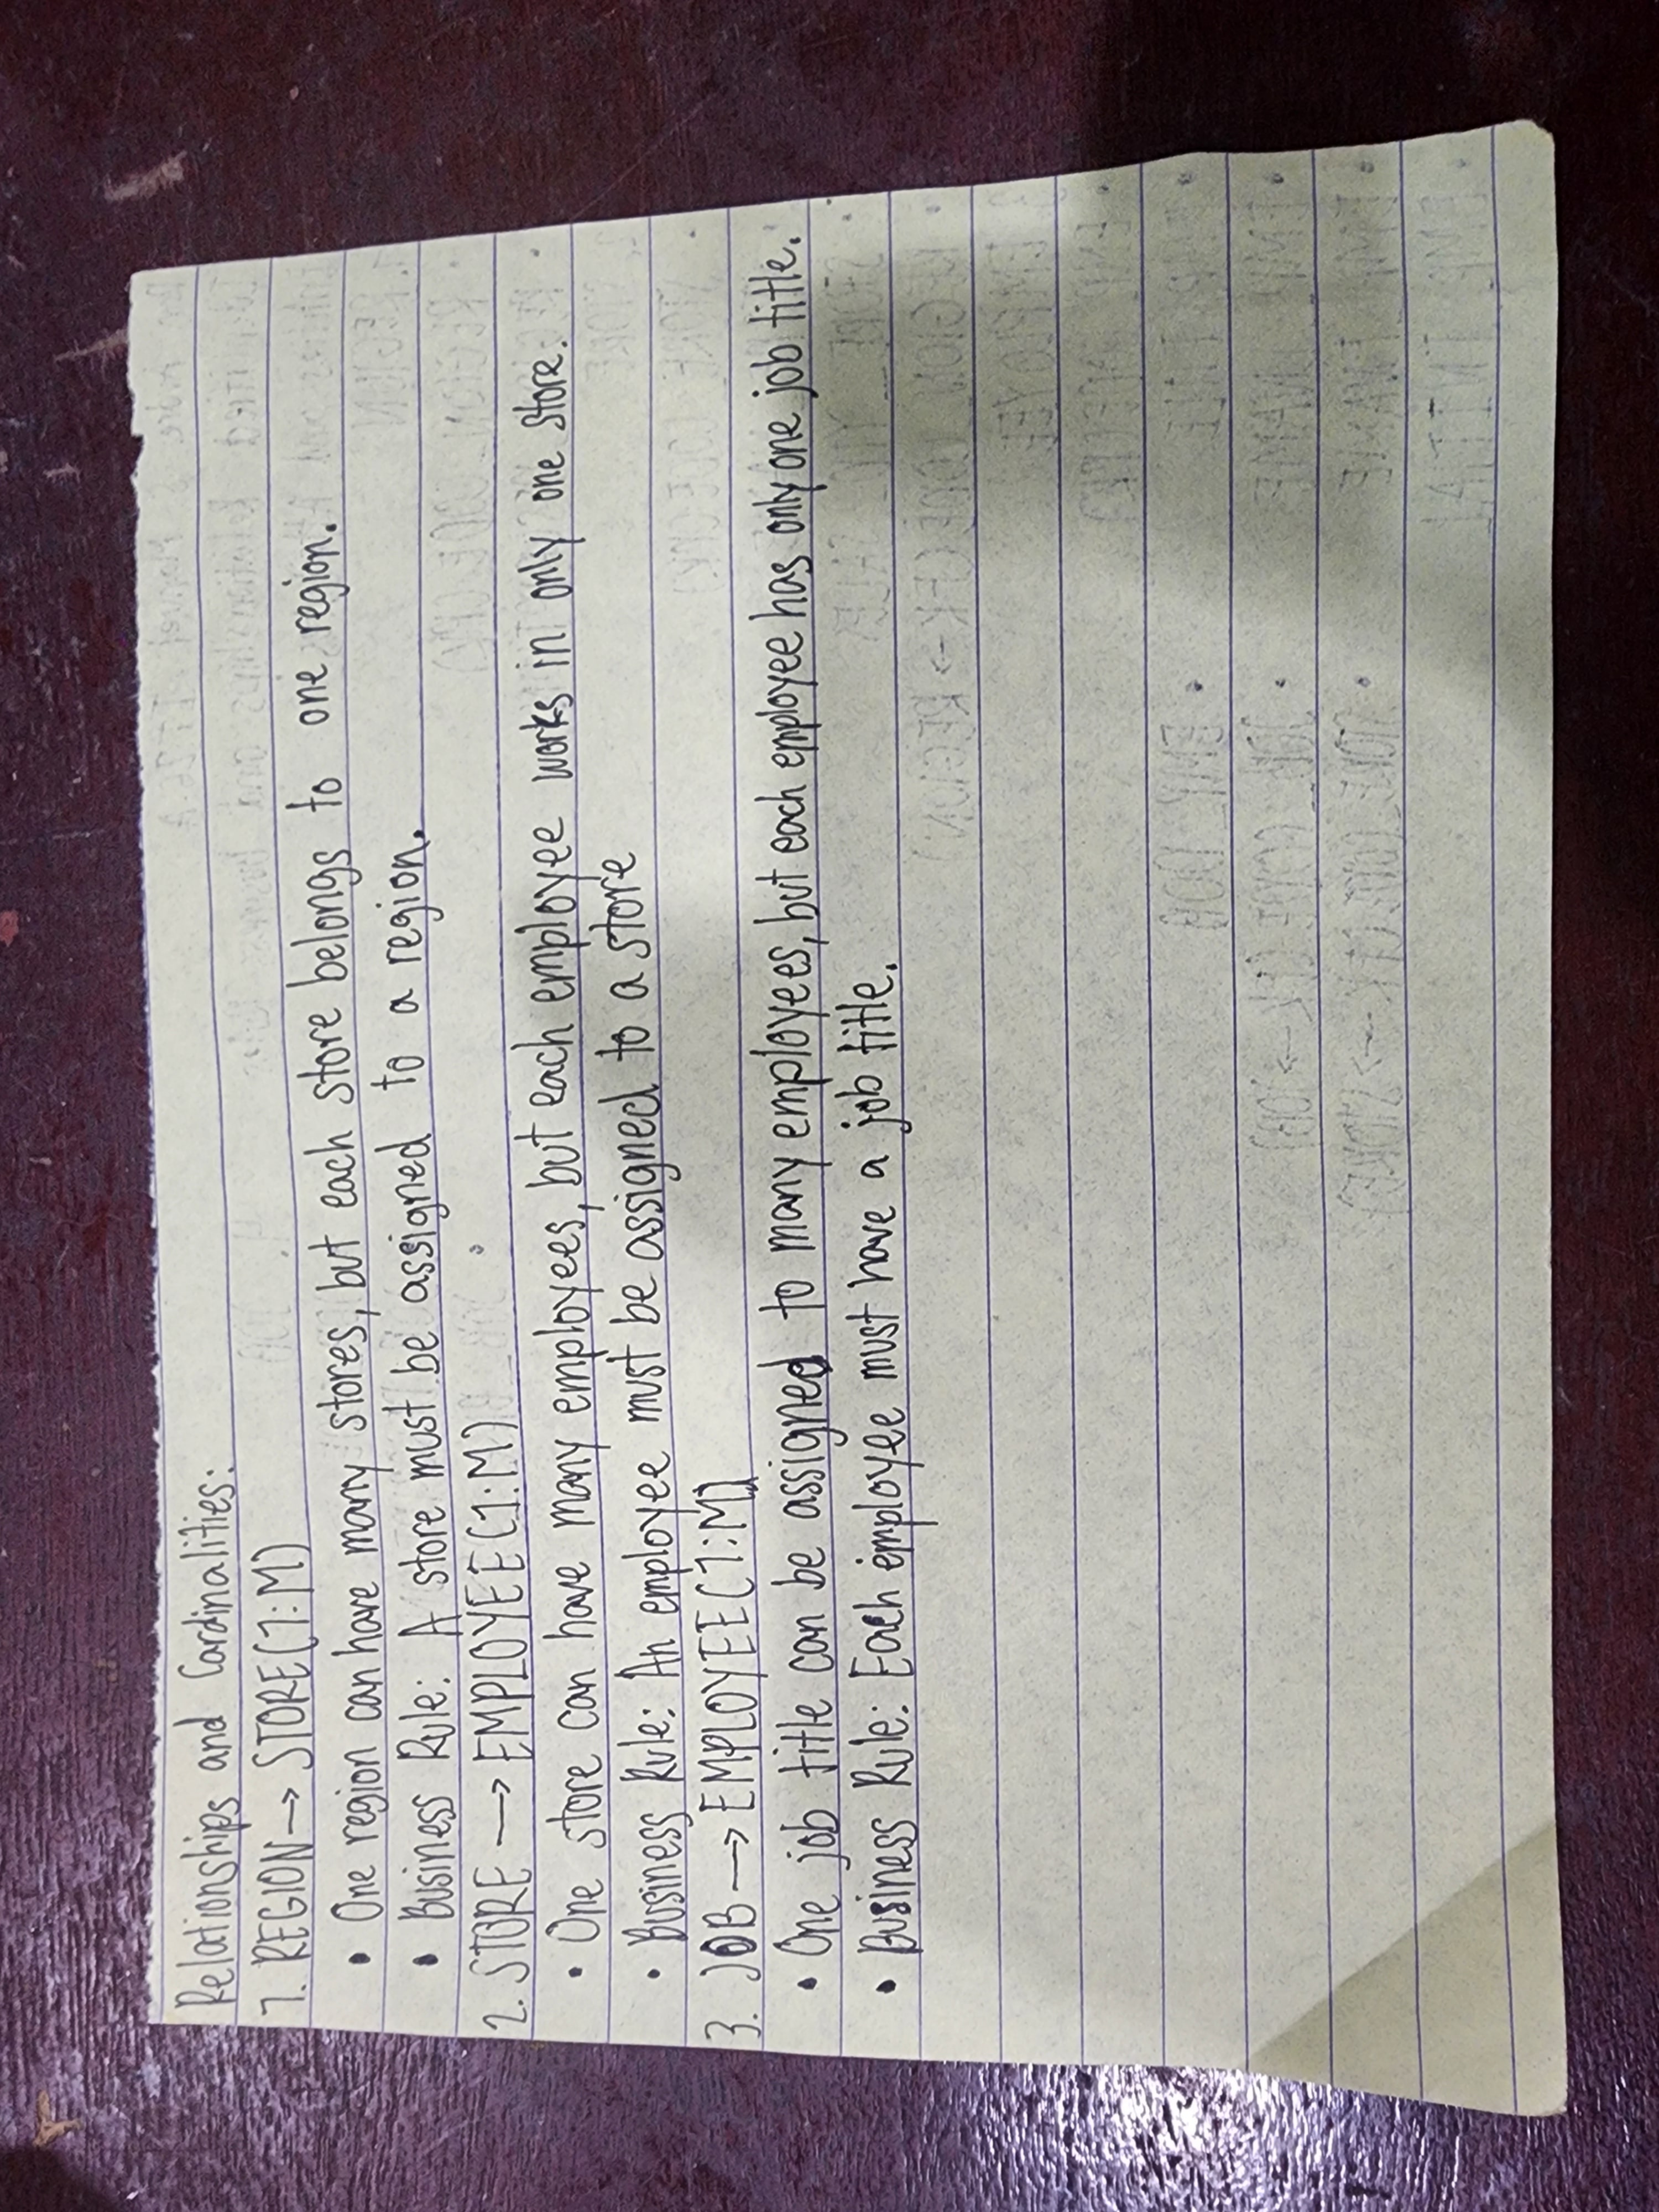 Relationships and Cardinalities:
1. REGION → STORE (1:M)
• One region can have many stores, but each store belongs to one region.
• Business Rule: A store must be assigned to a region.
2. STORE → EMPLOYEE (1:M)
• One store can have many employees, but each employee works in only one store.
• Business Rule: An employee must be assigned to a store
3. JOB → EMPLOYEE (1:M)
• One job title can be assigned to many employees, but each employee has only one job title.
• Business Rule: Each employee must have a job title.